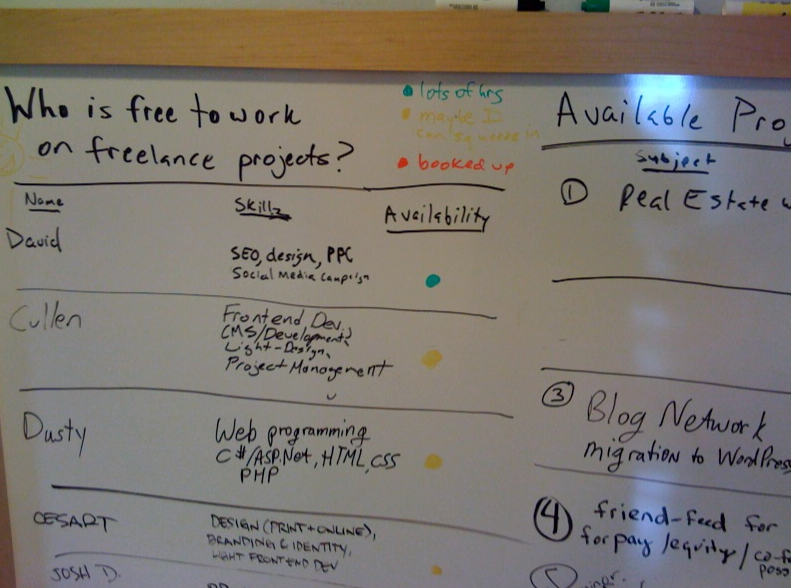 Who is free to work
on freelance projects?
lots of hrs
maybe I
can squeeze in
booked up
Name
Skillz
Availability
David
SEO, design, PPC
Social Media Campaign
Cullen
Frontend Dev.
CMS/Development,
Light-Design,
Project Management
Dusty
Web programming
C#/ASP.Net, HTML, CSS
PHP
CESART
DESIGN (PRINT + ONLINE),
BRANDING & IDENTITY,
LIGHT FRONT END DEV
JOSH D.
Available Pro
Subject
1 Real Estate w
3 Blog Network
migration to WordPress
4 friend-feed for
for pay/equity/co-f
poss
5